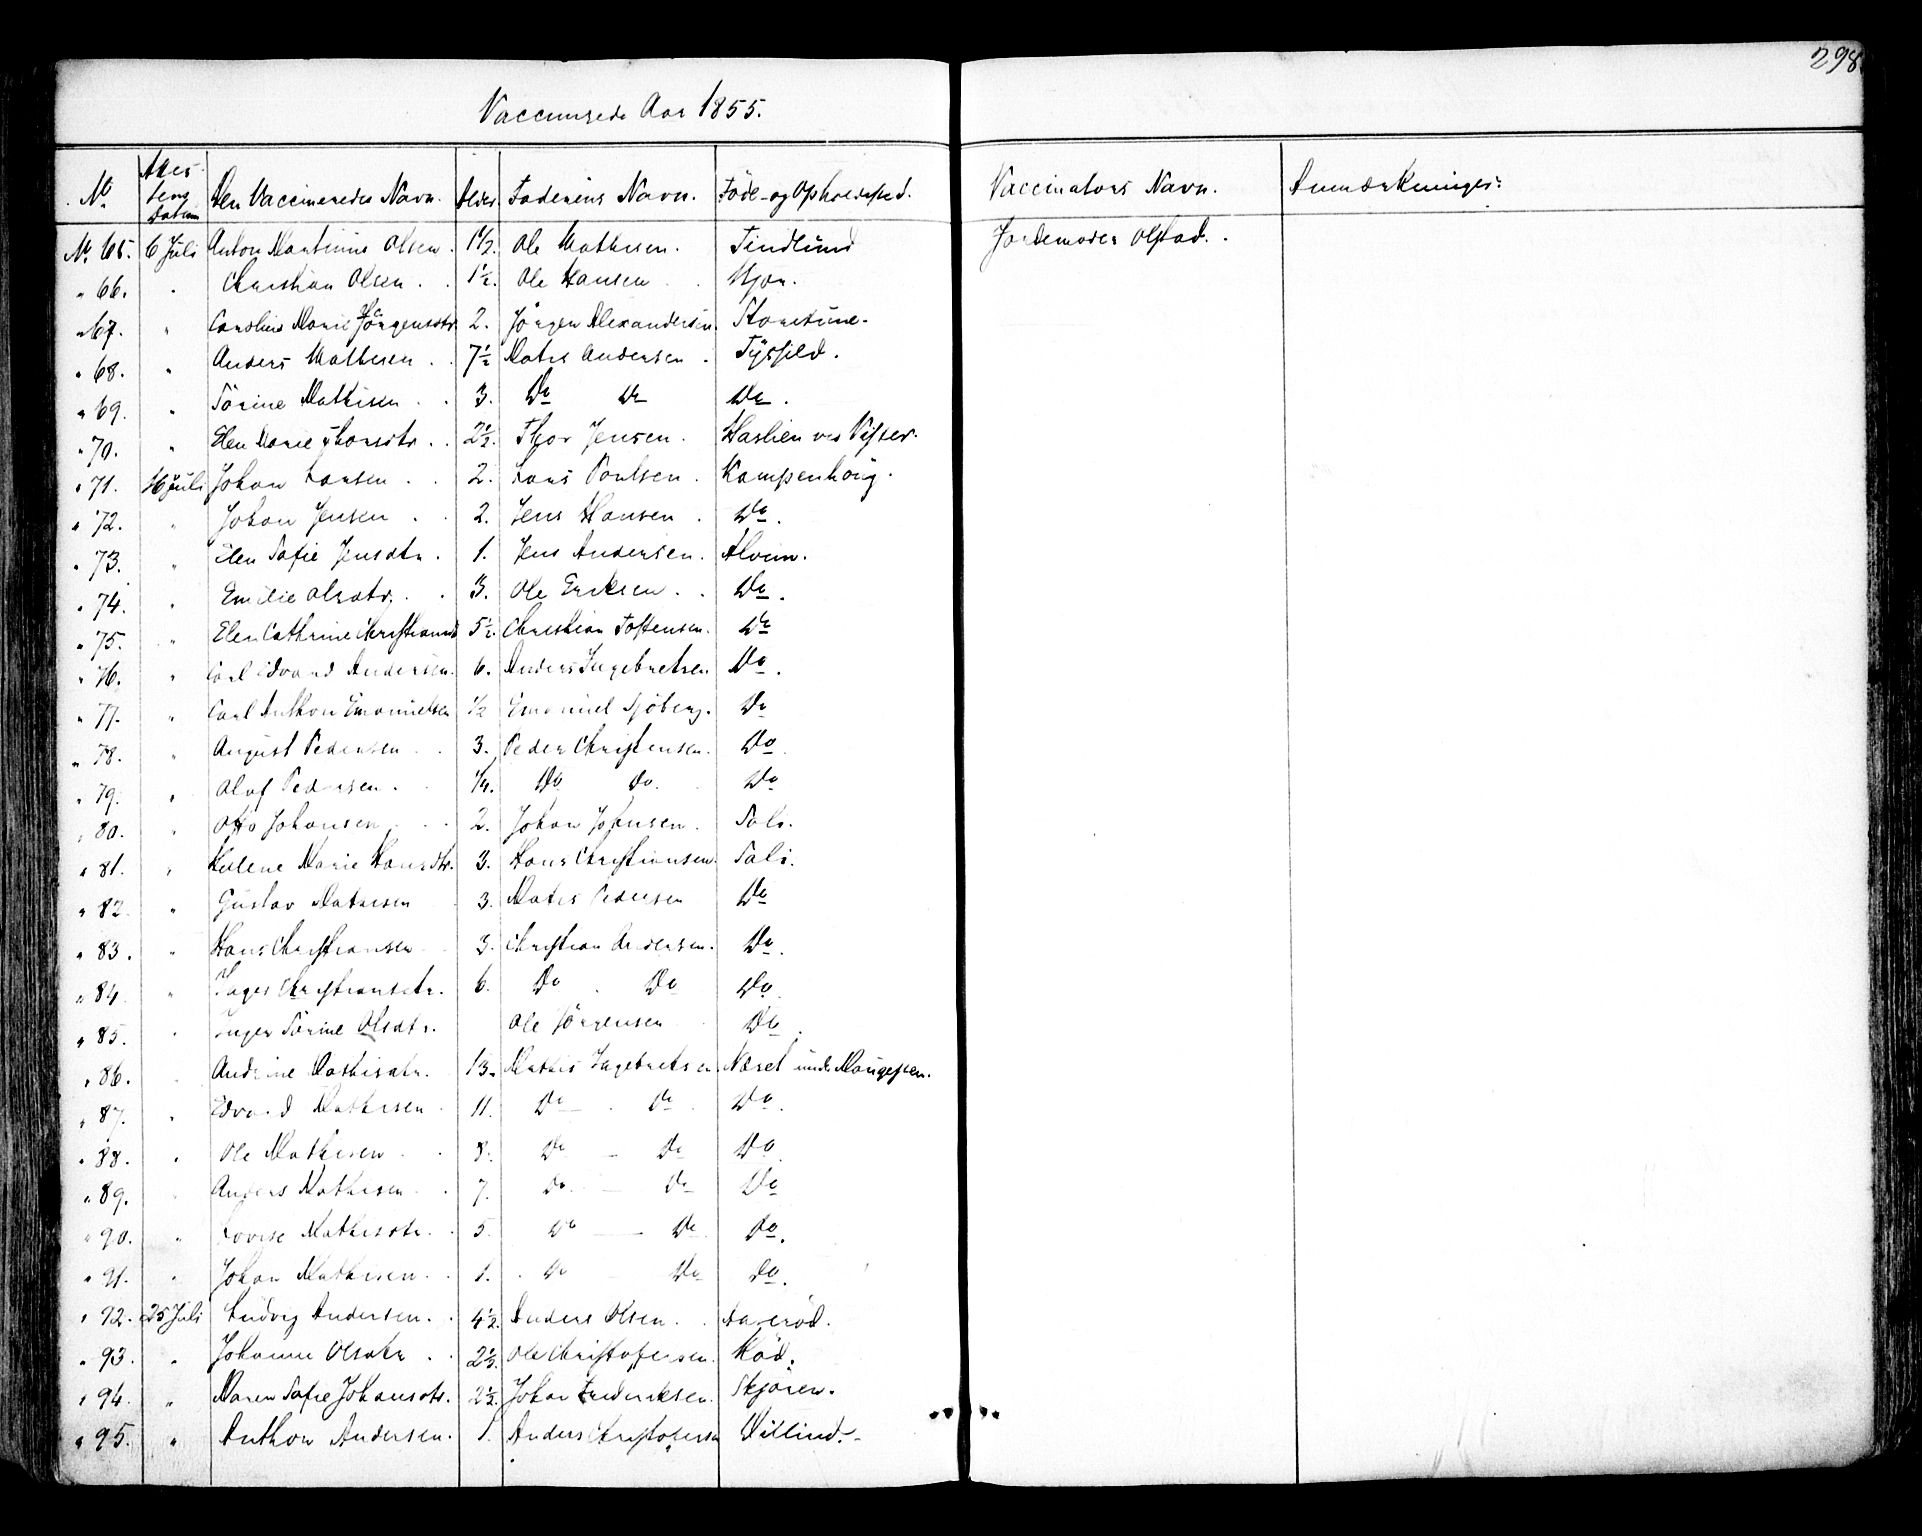 298
Vaccinerede Aar 1855.
No. Attestens Datum Den Vaccineredes Navn. Alder. Faderens Navn. Føde- og Opholdssted. Vaccinators Navn. Anmærkninger.
No. 65. 6 Juli Anton Martinius Olsen. 1½. Ole Mathisen. Tindlund Jordemoder Olstad.
" 66. " Christian Olsen. 1½. Ole Hansen
" 67. " Caroline Marie Jörgensdtr. 2. Jörgen Alexandersen.
" 68. " Anders Mathisen. 7½ Matis Andersen.
" 69. " Sörine Mathisen. 3. Do Do Do.
" 70. " Elen Marie Thorsdtr. 2½. Thor Jensen. Haslien ved Vister.
" 71. 16 Juli Johan Larsen. 2. Lars Poulsen. Kampenhöig.
" 72. " Johan Jensen. 2. Jens Hansen. Do.
" 73. " Elen Sofie Jensdtr. 1. Jens Andersen. Alvim.
" 74. " Emilie Olsdtr. 3. Ole Eriksen. Do.
" 75. " Elen Cathrine Christiansd 5½. Christian Toftensen. Do
" 76. " Carl Edvard Andersen. 6. Anders Ingebretsen Do.
" 77. " Carl Anthon Emanuelsen ½ Emanuel Sjöberg. Do
" 78. " August Pedersen. 3. Peder Christensen. Do
" 79. " Oluf Pedersen. ¼. Do Do. Do
" 80. " Otto Johansen 2. Johan Johnsen. Sali.
" 81. " Helene Marie Hansdtr. 3. Hans Christiansen. Sali.
" 82. " Gustav Mathisen 3. Matis Pedersen Do
" 83. " Hans Christiansen 3. Christian Andersen. Do.
" 84. " Inger Christiansdtr. 6. Do Do Do.
" 85. " Inger Sörine Olsdtr. Ole Jörgensen Do.
" 86. Andrine Mathisdtr. 13. Mathis Ingebretsen. Næset under Haugesten.
" 87. " Edvard Mathisen 11. Do Do Do.
" 88. " Ole Mathisen 8. Do Do Do
" 89. " Anders Mathisen 7. Do Do Do
" 90. " Lovise Mathisdtr. 5. Do Do Do.
" 91. " Johan Mathisen. 1. Do Do Do.
" 92. 25 Juli Ludvig Andersen. 4½. Anders Olsen.
" 93. " Johanne Olsdtr. 2½. Ole Christofersen.
" 94. " Maren Sofie Johansdtr. 2½. Johan Frederiksen. Skjören.
" 95. " Anthon Andersen. 1. Anders Christofersen